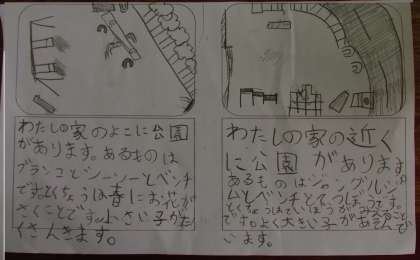 わたしの家のよこに公園
があります。あるものは
ブランコとシーソーとベンチ
ですとくちょうは春にお花が
さくことです。小さい子がた
くさんきます。
わたしの家の近く
に公園があります
あるものはジャングルジ
ムとベンチとてつぼうです。
とくちょうは
です。よく大きい子があそんで
います。